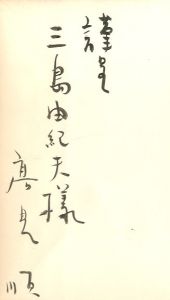 謹呈
三島由紀夫様
高見順